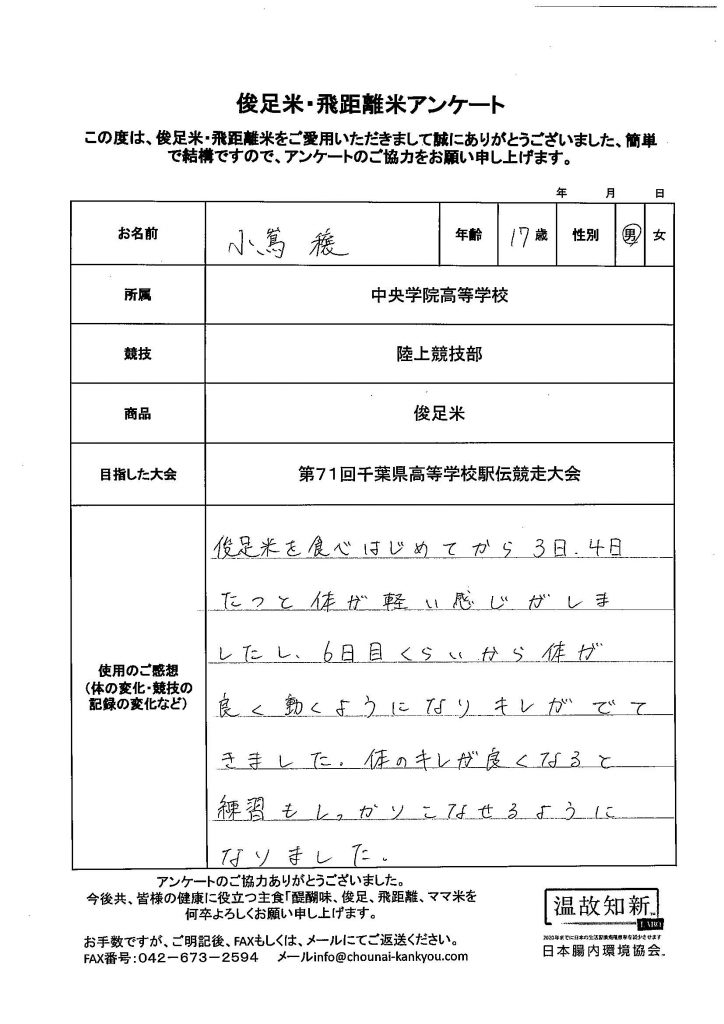 俊足米・飛距離米アンケート
この度は、俊足米・飛距離米をご愛用いただきまして誠にありがとうございました、簡単
で結構ですので、アンケートのご協力をお願い申し上げます。
年 月 日
お名前 小嶌 穣 年齢 17歳 性別 男 女
所属 中央学院高等学校
競技 陸上競技部
商品 俊足米
目指した大会 第71回千葉県高等学校駅伝競走大会
使用のご感想
(体の変化・競技の
記録の変化など)
俊足米を食べはじめてから3日.4日
たつと体が軽い感じがしま
したし、6日目くらいから体が
良く動くようになりキレがでて
きました。体のキレが良くなると
練習もしっかりこなせるように
なりました。
アンケートのご協力ありがとうございました。
今後共、皆様の健康に役立つ主食「醍醐味、俊足、飛距離、ママ米を
何卒よろしくお願い申し上げます。
お手数ですが、ご明記後、FAXもしくは、メールにてご返送ください。
FAX番号:042-673-2594 メールinfo@chounai-kankyou.com
温故知新
LABO
日本腸内環境協会